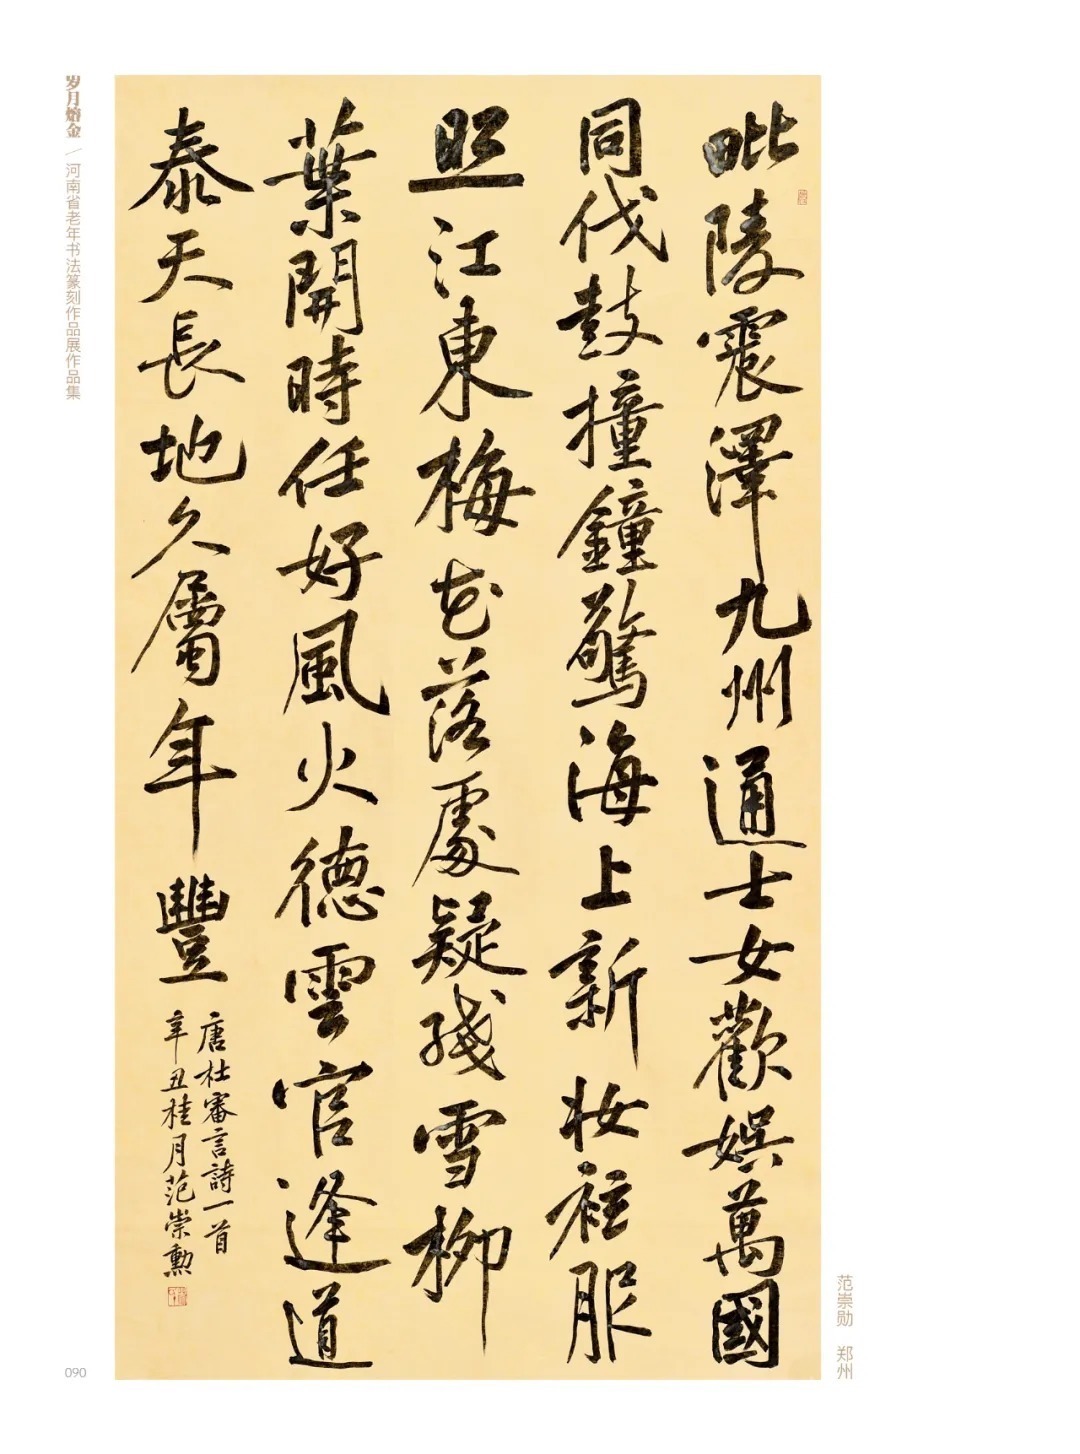 毗陵震澤九州通士女歡娛萬國
同伐鼓撞鐘驚海上新妝袨服
照江東梅花落處疑殘雪柳
葉開時任好風火德雲官逢道
泰天長地久屬年豐
唐杜審言詩一首
辛丑桂月范崇勳
范崇勋 郑州
岁月熔金／河南省老年书法篆刻作品展作品集
090